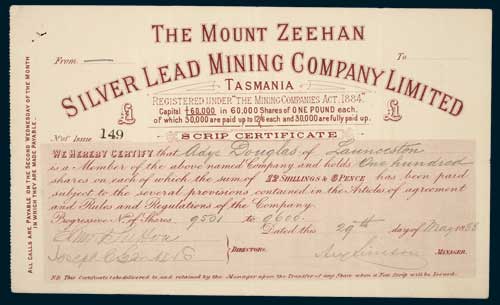 THE MOUNT ZEEHAN
From
To
SILVER LEAD MINING COMPANY LIMITED
TASMANIA
REGISTERED UNDER "THE MINING COMPANIES ACT, 1884"
Capital £60,000 in 60,000 Shares of ONE POUND each.
of which 30,000 are paid up to 12/6 each and 30,000 are fully paid up.
£ £
No. of Issue 149
SCRIP CERTIFICATE
WE HEREBY CERTIFY that Adye Douglas of Launceston
is a Member of the above named Company and holds One hundred
shares on each of which the sum of 12 SHILLINGS & 6 PENCE has been paid
subject to the several provisions contained in the Articles of agreement
and Rules and Regulations of the Company.
Progressive No. of Shares 9501 to 9600
Dated this 29th day of May 1888
DIRECTORS.
MANAGER.
NB This Certificate to be delivered to and retained by the Manager upon the Transfer of any Share when a New Scrip will be Issued.
ALL CALLS ARE PAYABLE ON THE SECOND WEDNESDAY OF THE MONTH
IN WHICH THEY ARE MADE PAYABLE.